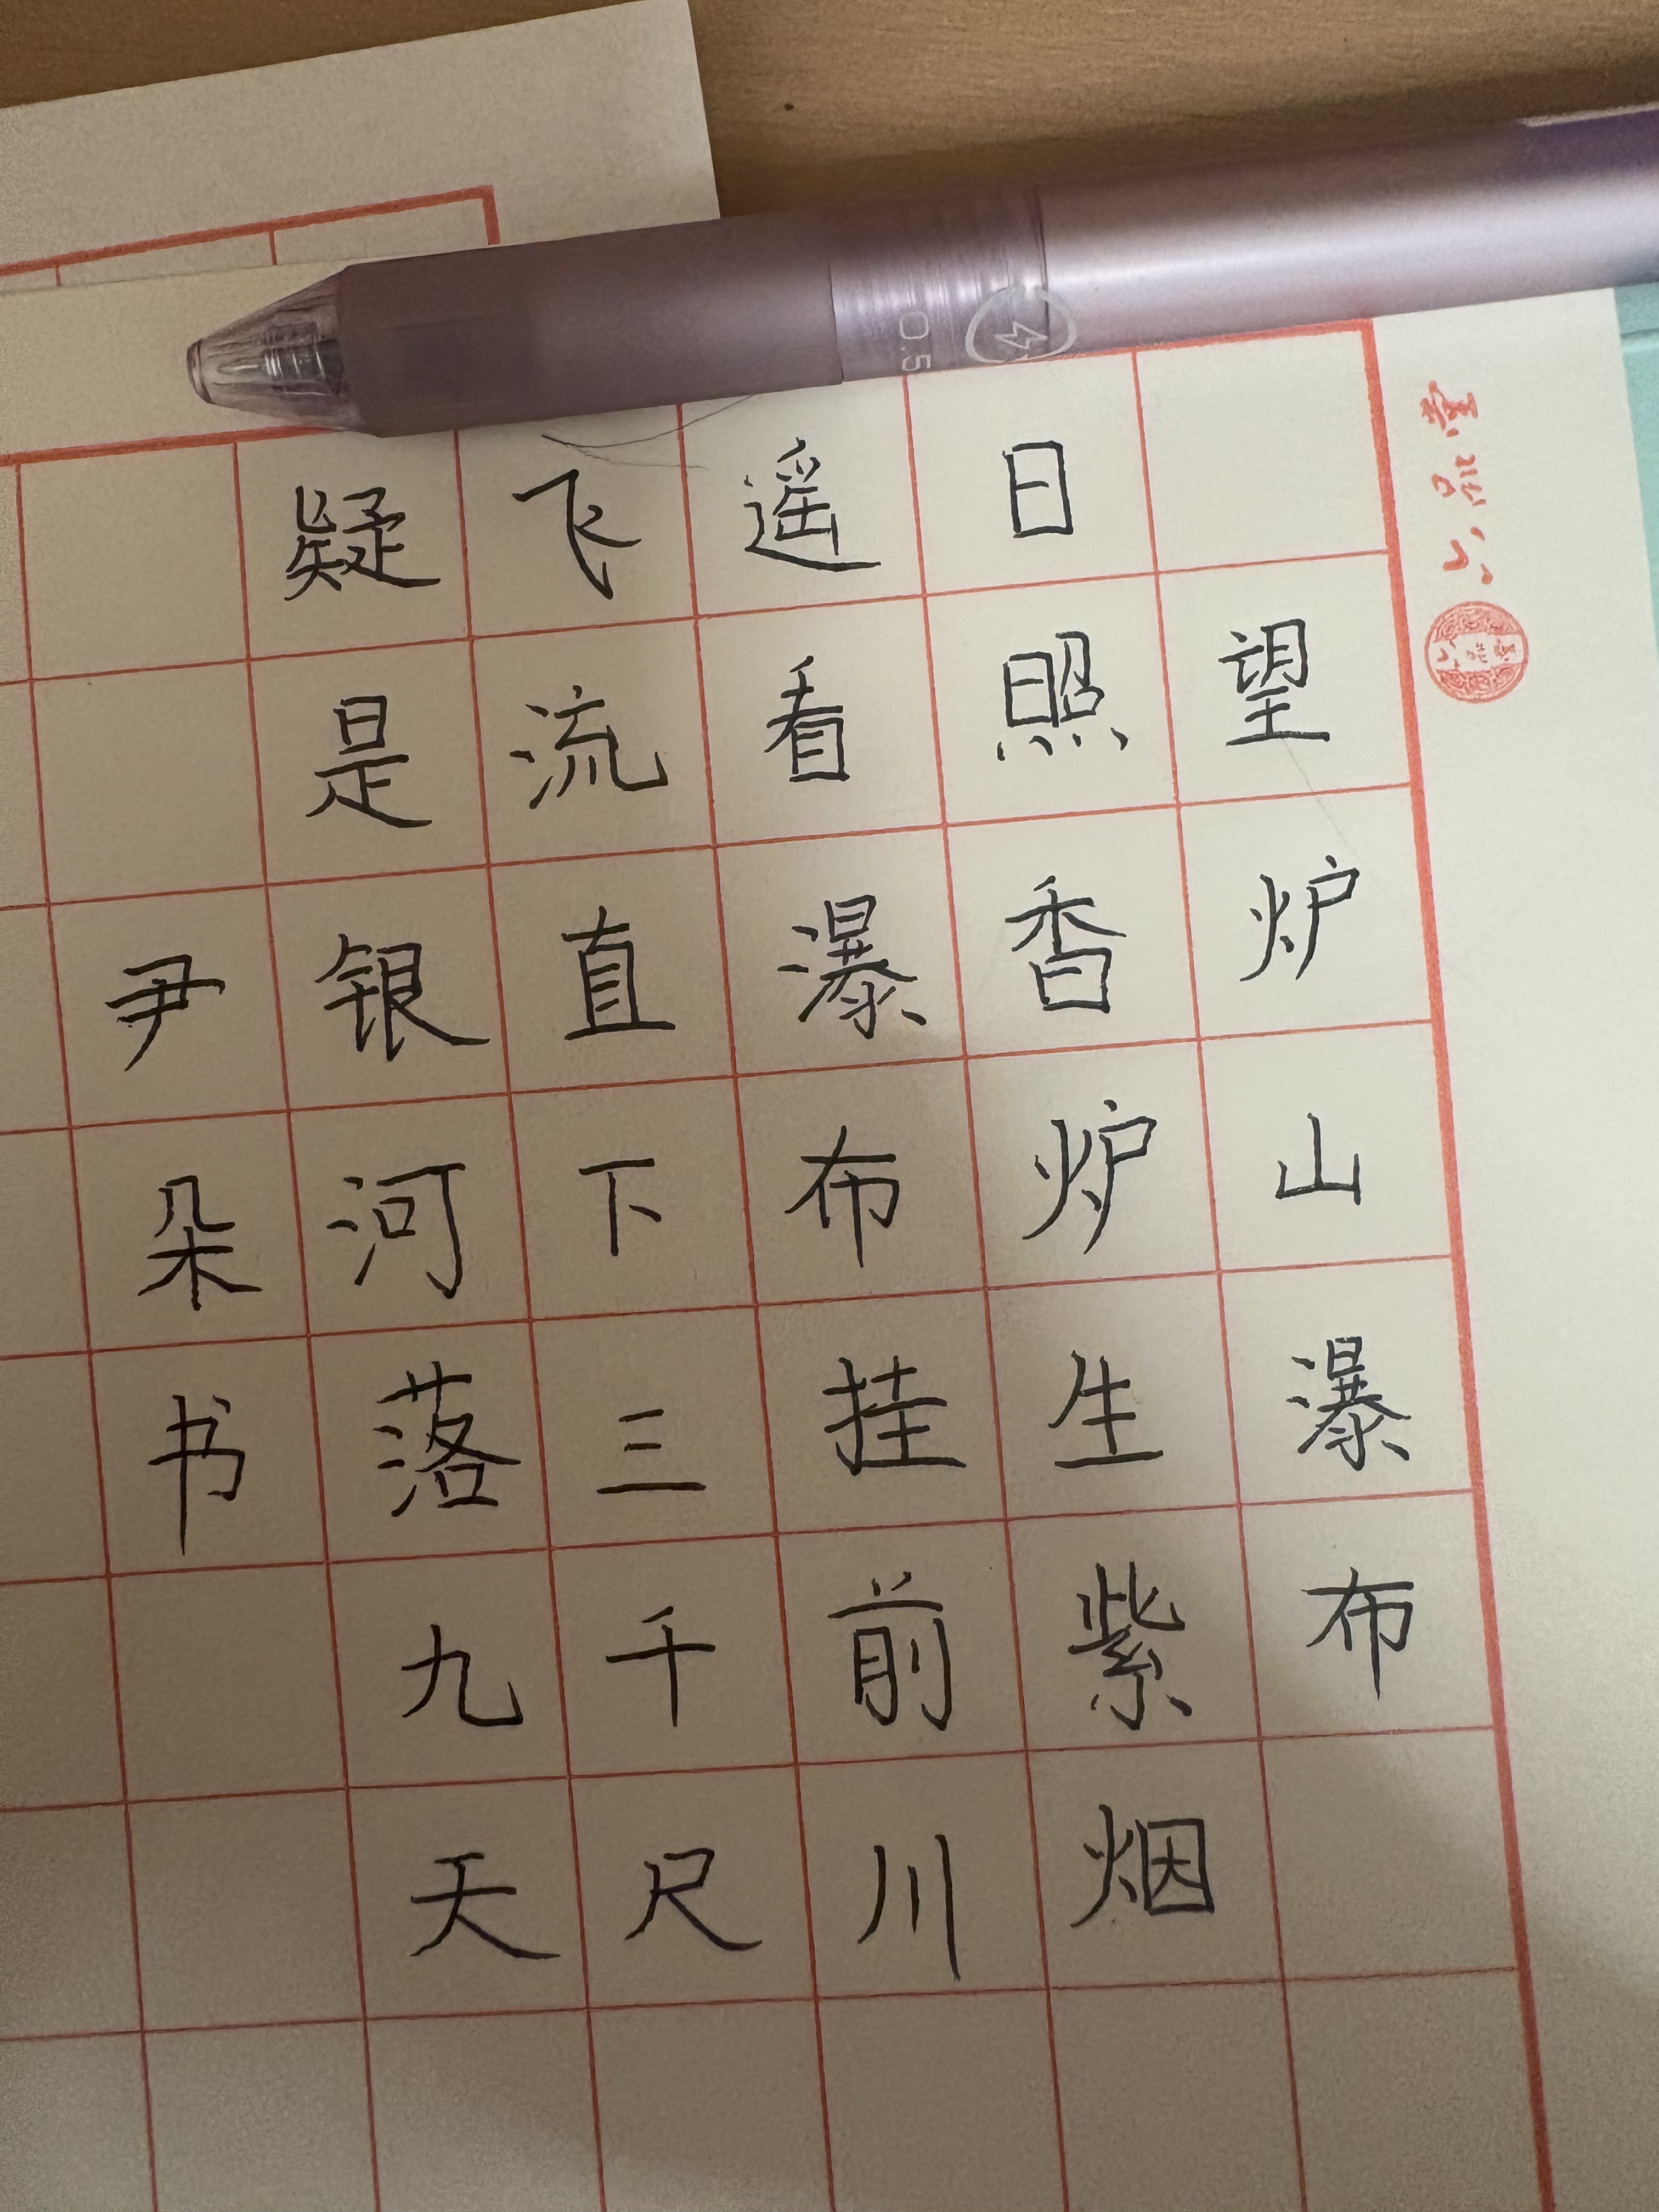 望炉山瀑布
日照香炉生紫烟
遥看瀑布挂前川
飞流直下三千尺
疑是银河落九天
尹朵书
六品堂
六品堂
0.5